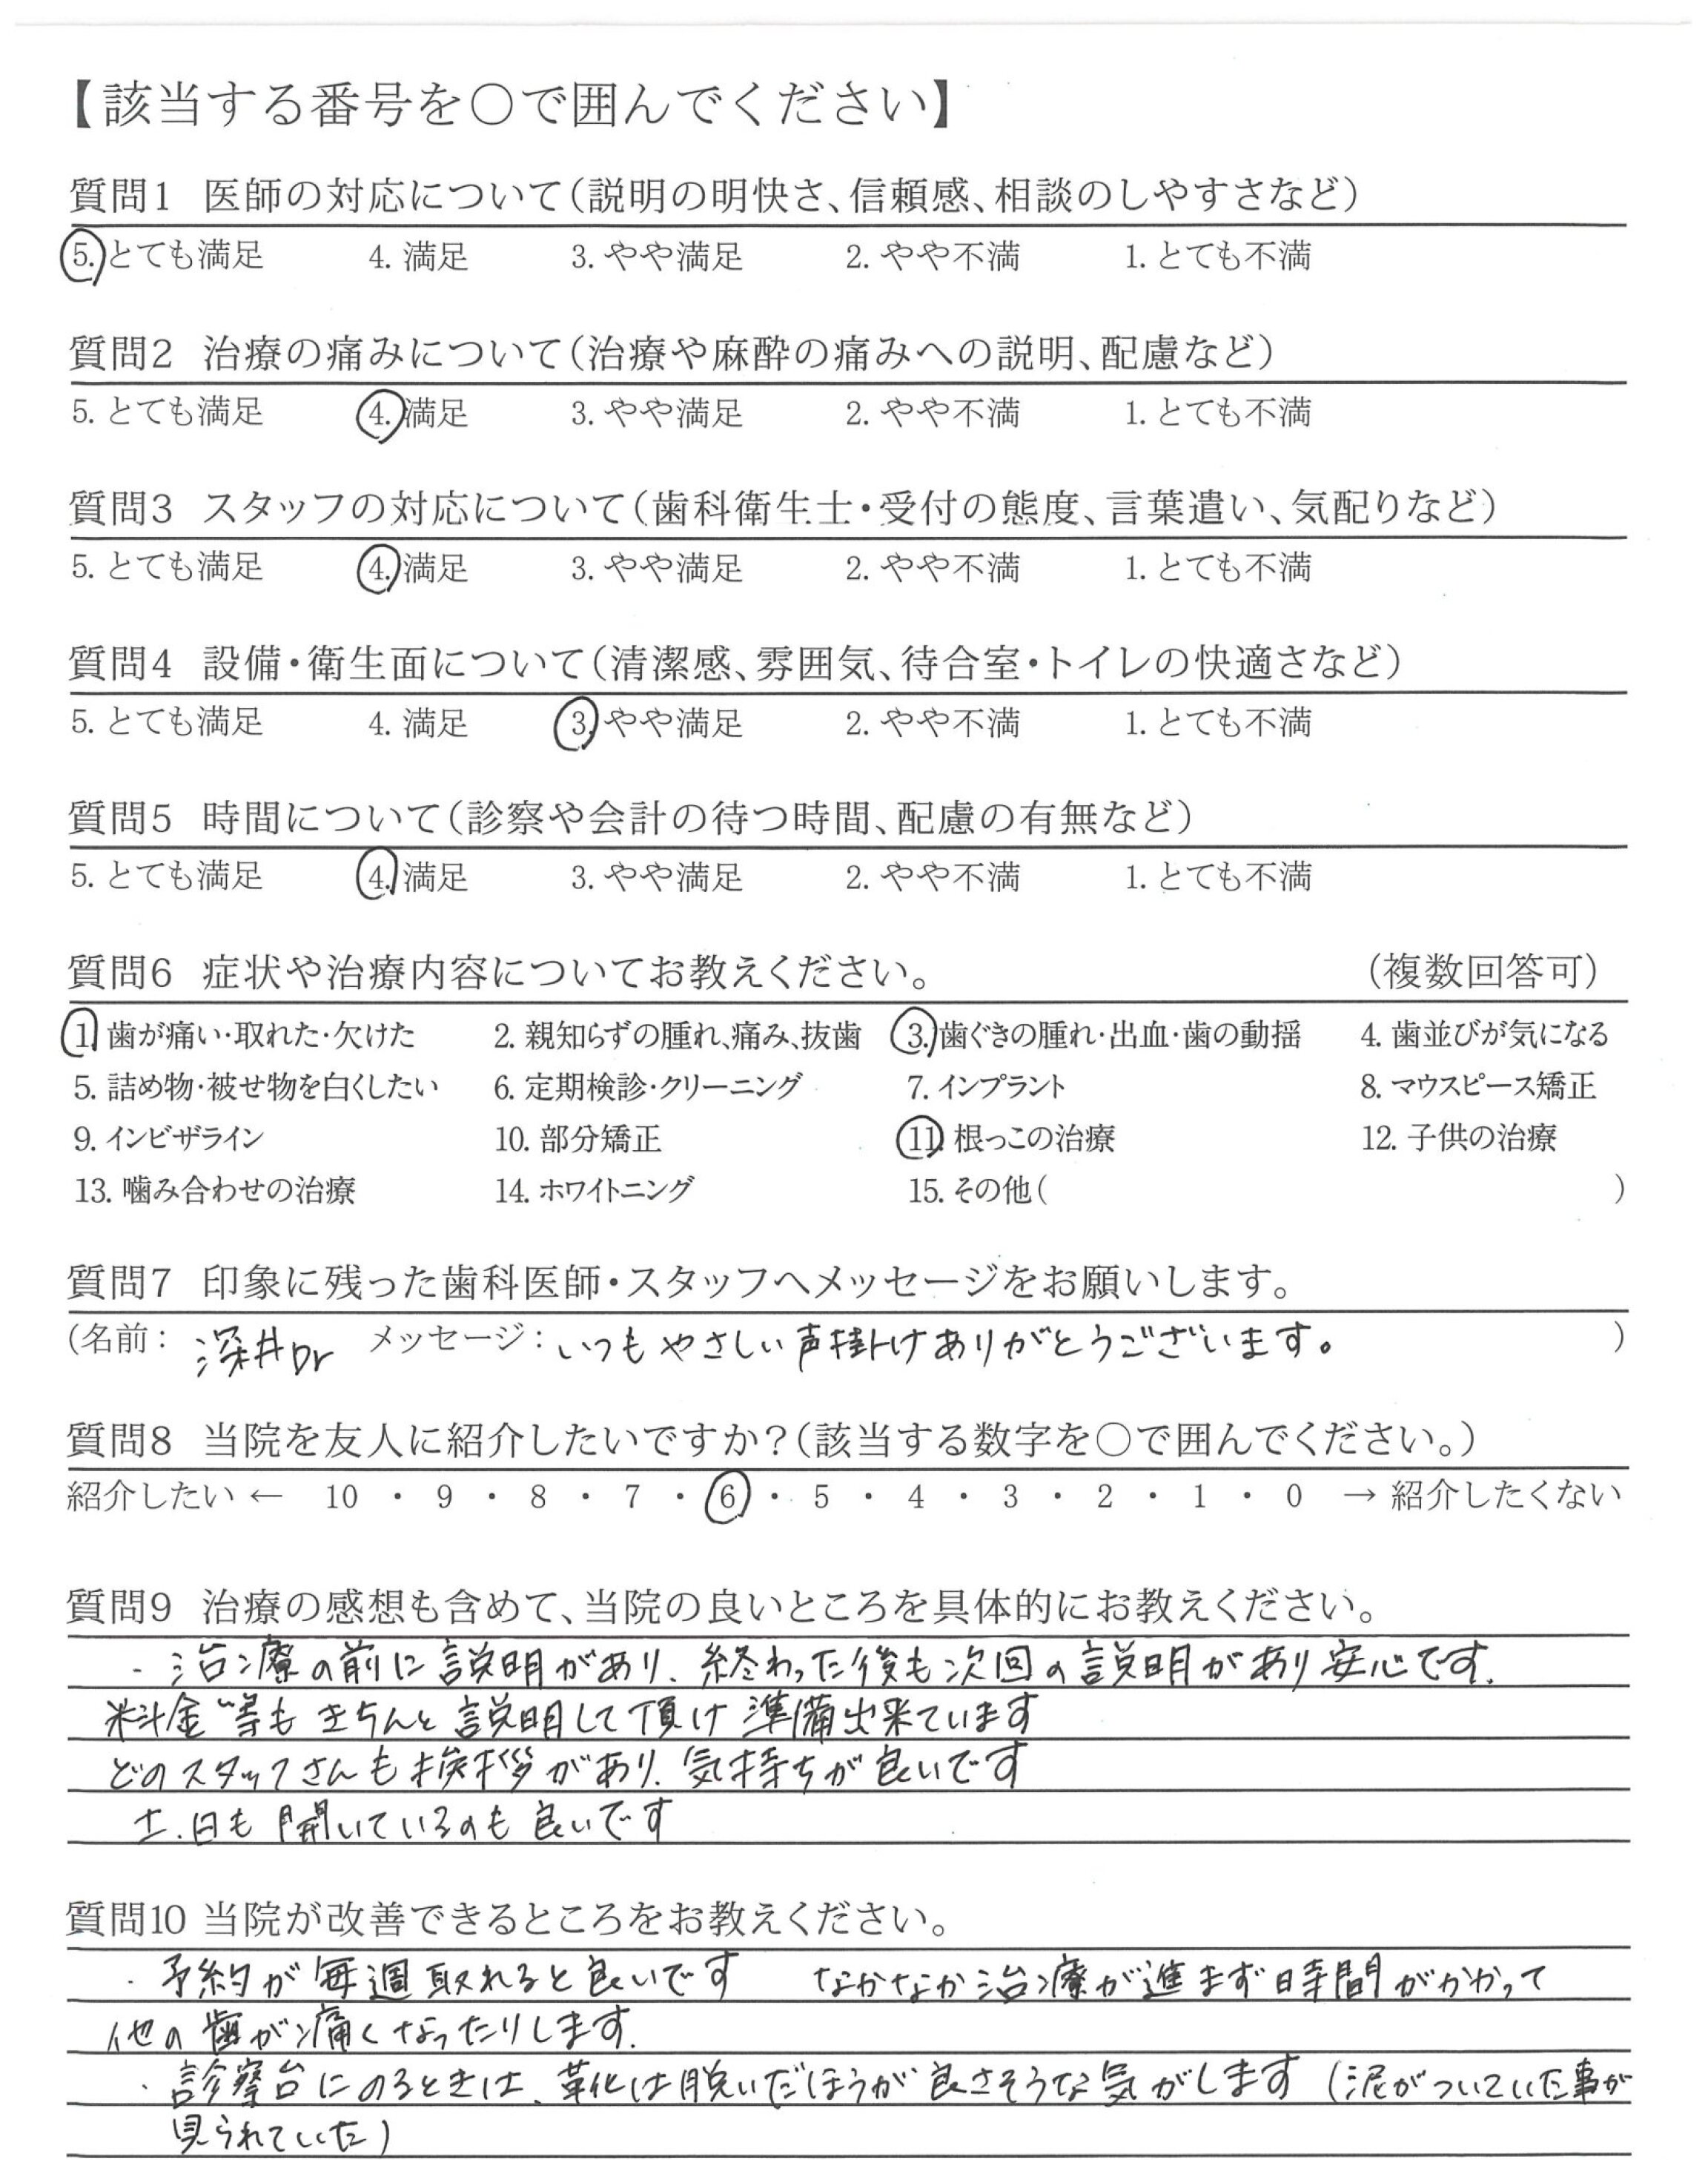 【該当する番号を○で囲んでください】
質問1 医師の対応について(説明の明快さ、信頼感、相談のしやすさなど)
5. とても満足 4. 満足 3. やや満足 2. やや不満 1. とても不満
質問2 治療の痛みについて(治療や麻酔の痛みへの説明、配慮など)
5. とても満足 4. 満足 3. やや満足 2. やや不満 1. とても不満
質問3 スタッフの対応について(歯科衛生士・受付の態度、言葉遣い、気配りなど)
5. とても満足 4. 満足 3. やや満足 2. やや不満 1. とても不満
質問4 設備・衛生面について(清潔感、雰囲気、待合室・トイレの快適さなど)
5. とても満足 4. 満足 3. やや満足 2. やや不満 1. とても不満
質問5 時間について(診察や会計の待つ時間、配慮の有無など)
5. とても満足 4. 満足 3. やや満足 2. やや不満 1. とても不満
質問6 症状や治療内容についてお教えください。 (複数回答可)
1. 歯が痛い・取れた・欠けた 2. 親知らずの腫れ、痛み、抜歯 3. 歯ぐきの腫れ・出血・歯の動揺 4. 歯並びが気になる
5. 詰め物・被せ物を白くしたい 6. 定期検診・クリーニング 7. インプラント 8. マウスピース矯正
9. インビザライン 10. 部分矯正 11. 根っこの治療 12. 子供の治療
13. 噛み合わせの治療 14. ホワイトニング 15. その他( )
質問7 印象に残った歯科医師・スタッフへメッセージをお願いします。
(名前: 深井Dr メッセージ: いつもやさしい声掛けありがとうございます。 )
質問8 当院を友人に紹介したいですか?(該当する数字を○で囲んでください。)
紹介したい ← 10 ・ 9 ・ 8 ・ 7 ・ 6 ・ 5 ・ 4 ・ 3 ・ 2 ・ 1 ・ 0 → 紹介したくない
質問9 治療の感想も含めて、当院の良いところを具体的にお教えください。
・治療の前に説明があり、終わった後も次回の説明があり安心です。
料金等もきちんと説明して頂け準備出来ています
どのスタッフさんも挨拶があり、気持ちが良いです
土、日も開いているのも良いです
質問10 当院が改善できるところをお教えください。
・予約が毎週取れると良いです なかなか治療が進まず時間がかかって
他の歯が痛くなったりします。
・診察台にのるときは、革化は脱いだほうが良さそうな気がします (泥がついていた事が
見られていた)